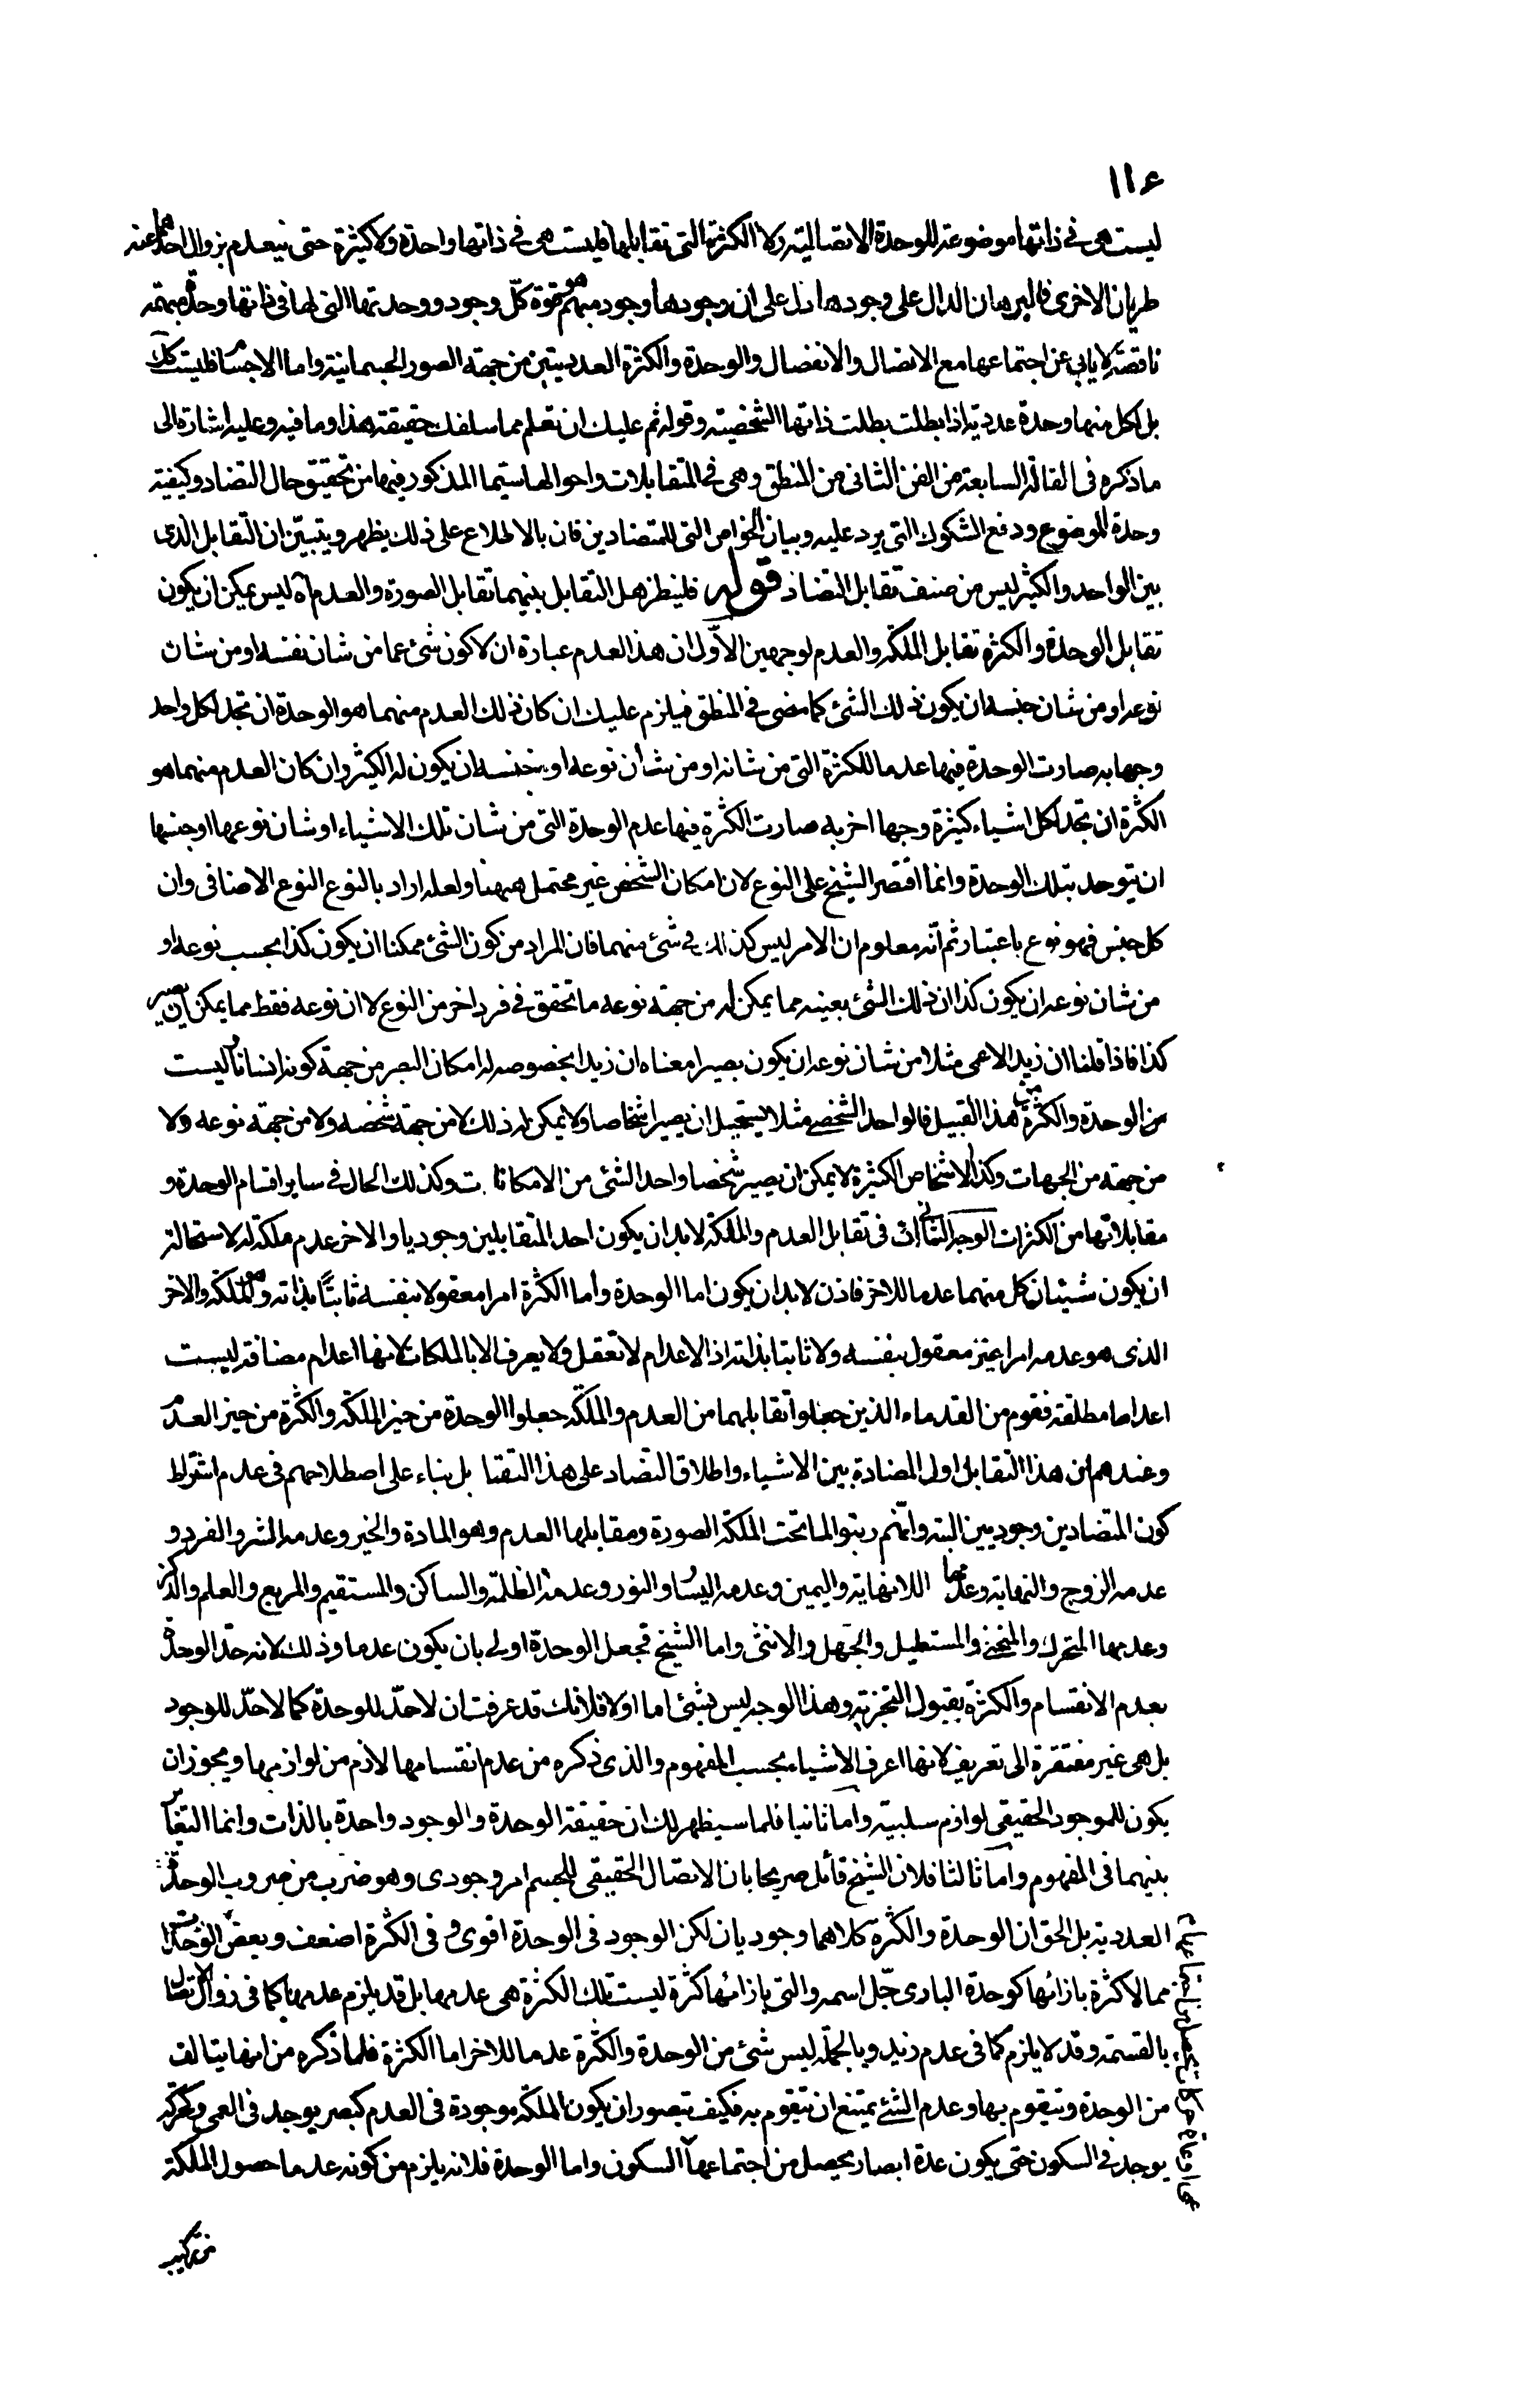 ١١٤
ليست هى فى ذاتها موضوعة للوحدة الاتصالية ولا الكثرة التى تقابلها فليست هى فى ذاتها واحدة ولا كثيرة حتى ينعدم بزوال احدهما عنه
طريان الاخرى فالبرهان الدال على وجودها دل على ان وجودها وجود مبهم هو قوة كل وجود ووحدتها التى لها فى ذاتها وحدة مبهمة
ناقصة لا يابى عن اجتماعها مع الاتصال والانفصال والوحدة والكثرة العدديتين من جهة الصور الجسمانية واما الاجسام فليست كك
بل لكل منها وحدة عددية اذا بطلت بطلت ذاتها الشخصية وقوله ثم عليك ان تعلم مما سلف لك حقيقة هذا وما فيه وعليه اشارة الى
ما ذكره فى المقالة السابعة من الفن الثانى من المنطق وهى فى المتقابلات واحوالها سيما المذكور فيها من تحقيق حال التضاد وكيفية
وحدة الموضوع ودفع الشكوك التى يرد عليه وبيان الخواص التى للمتضادين فان بالاطلاع على ذلك يظهر ويتبين ان التقابل الذى
بين الواحد والكثير ليس من صنف تقابل التضاد قوله فلينظر هل التقابل بينهما تقابل الصورة والعدم آه ليس يمكن ان يكون
تقابل الوحدة والكثرة تقابل الملكة والعدم لوجهين الاول ان هذا العدم عبارة ان لا كون شئ عما من شان نفسه او من شان
نوعه او من شان جنسه ان يكون ذلك الشئ كما مضى فى المنطق فيلزم عليك ان كان ذلك العدم منهما هو الوحدة ان تجد لكل واحد
وجها به صارت الوحدة فيها عدما للكثرة التى من شانه او من شأن نوعه او جنسه ان يكون له الكثير وان كان العدم منهما هو
الكثرة ان تجد لكل اشياء كثيرة وجها اخر به صارت الكثرة فيها عدم الوحدة التى من شان تلك الاشياء او شان نوعها او جنسها
ان يتوحد بتلك الوحدة وانما اقتصر الشيخ على النوع لان امكان الشخص غير محتمل ههنا ولعله اراد بالنوع النوع الاضافى وان
كل جنس فهو نوع باعتبار ثم انه معلوم ان الامر ليس كذلك فى شئ منهما فان المراد من كون الشئ ممكنا ان يكون كذا بحسب نوعه او
من شان نوعه ان يكون كذا ان ذلك الشئ بعينه مما يمكن له من جهة نوعه ما تحقق فى فرد اخر من النوع لا ان نوعه فقط مما يمكن ان يصير
كذا فاذا قلنا ان زيد الاعمى مثلا من شان نوعه ان يكون بصيرا معناه ان زيدا بخصوصه له امكان البصر من جهة كونه انسانا وليست
من الوحدة والكثرة من هذا القبيل فالواحد الشخصى مثلا يستحيل ان يصير اشخاصا ولا يمكن له ذلك لا من جهة شخصه ولا من جهة نوعه ولا
من جهة من الجهات وكذا الاشخاص الكثيرة لا يمكن ان يصير شخصا واحدا لشئ من الامكانات وكذلك الحال فى ساير اقسام الوحدة و
مقابلاتها من الكثرات الوجه الثانى ان فى تقابل العدم والملكة لا بد ان يكون احد المتقابلين وجوديا والاخر عدم ملكة له لاستحالة
ان يكون شيئان كل منهما عدما للاخر فاذن لا بد ان يكون اما الوحدة وأما الكثرة امرا معقولا بنفسه ثابتا بذاته وهو الملكة والاخر
الذى هو عدمه امرا غير معقول بنفسه ولا ثابتا بذاته اذ الاعدام لا تعقل ولا يعرف الا بالملكات لانها اعدام مضافة ليست
اعداما مطلقة فقوم من القدماء الذين جعلوا تقابلهما من العدم والملكة جعلوا الوحدة من حيز الملكة والكثرة من حيز العدم
وعندهم ان هذا التقابل اول المضادة بين الاشياء واطلاق التضاد على هذا التقابل بناء على اصطلاحهم فى عدم اشتراط
كون المتضادين وجوديين البته وانهم رتبوا لما تحت الملكة الصورة ومقابلها العدم وهو المادة والخير وعدمه الشر والفرد و
عدمه الزوج والنهاية وعدمها اللانهاية واليمين وعدمه اليسار والنور وعدمه الظلمة والساكن والمستقيم والمربع والعلم والذكر
وعدمها المتحرك والمنحنى والمستطيل والجهل والانثى واما الشيخ فجعل الوحدة اولى بان يكون عدما وذلك لانه حد الوحدة
بعدم الانقسام والكثرة بقبول التجزية وهذا الوجه ليس بشئ اما اولا فلانك قد عرفت ان لا حد للوحدة كما لا حد للوجود
بل هى غير مفتقرة الى تعريف لانها اعرف الاشياء بحسب المفهوم والذى ذكره من عدم انقسامها لازم من لوازمها ويجوز ان
يكون للموجود الحقيقى لوازم سلبية واما ثانيا فلما سيظهر لك ان حقيقة الوحدة والوجود واحدة بالذات وانما التغاير
بينهما فى المفهوم واما ثالثا فلان الشيخ قائل صريحا بان الاتصال الحقيقى للجسم امر وجودى وهو ضرب من ضروب الوحدة
العددية بل الحق ان الوحدة والكثرة كلاهما وجوديان لكن الوجود فى الوحدة اقوى وفى الكثرة اضعف وبعض الوحدات
مما لا كثرة بازائها كوحدة البارى جل اسمه والتى بازائها كثرة ليست تلك الكثرة هى عدمها بل قد يلزم عدمها كما فى زوال الاتصال
بالقسمة وقد لا يلزم كما فى عدم زيد وبالجملة ليس شئ من الوحدة والكثرة عدما للاخر اما الكثرة فلما ذكره من انها يتالف
من الوحدة ويتقوم بها وعدم الشئ يمتنع ان يتقوم به فكيف يتصور ان يكون الملكة موجودة فى العدم كبصر يوجد فى العمى وحركة
يوجد فى السكون حتى يكون عدة ابصار يحصل من اجتماعها السكون واما الوحدة فلانه يلزم من كونه عدما حصول الملكة
من تركيب